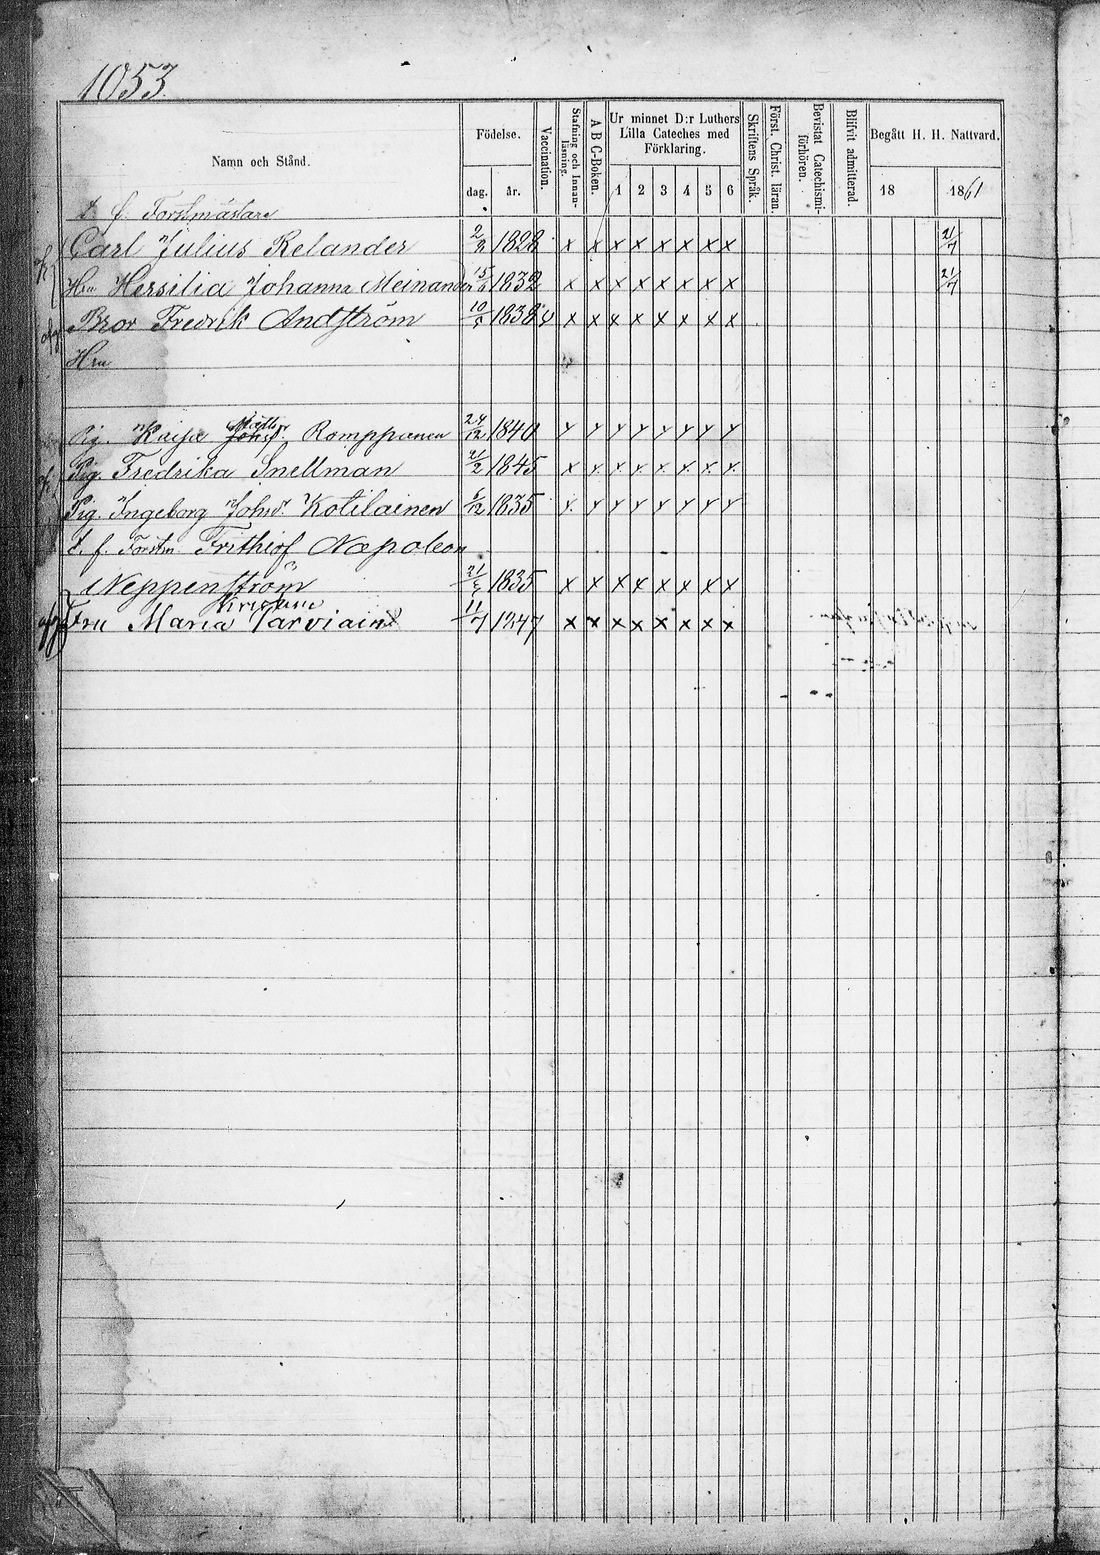 1053
Namn och Stånd.
Födelse.
dag. år.
Vaccination.
Stafning och Innan-läsning.
A B C-Boken.
Ur minnet D:r Luthers
Lilla Cateches med
Förklaring.
1 2 3 4 5 6
Skriftens Språk.
Först. Christ. läran.
Bevistat Catechismi-förhören.
Blifvit admitterad.
Begått H. H. Nattvard.
18 1861
t. f. Forstmästare
Carl Julius Relander 2/2 1828 x x x x x x x x 21/7
Hru Hersilia Johanna Meinander 15/6 1832 x x x x x x x x 21/7
Bror Fredrik Andström 10/5 1838 x x x x x x x x
Hru
Pig. Kaisa Mattsr Romppanen 24/12 1840 x x x x x x x x
Pig. Fredrika Snellman 21/2 1845 x x x x x x x x
Pig. Ingeborg Johsdr Kotilainen 5/12 1835 x x x x x x x x
t. f. Forstm. Frithiof Napoleon
Neppenström 21/5 1835 x x x x x x x x
Kristina
Fru Maria Tarviain 11/7 1847 x x x x x x x x